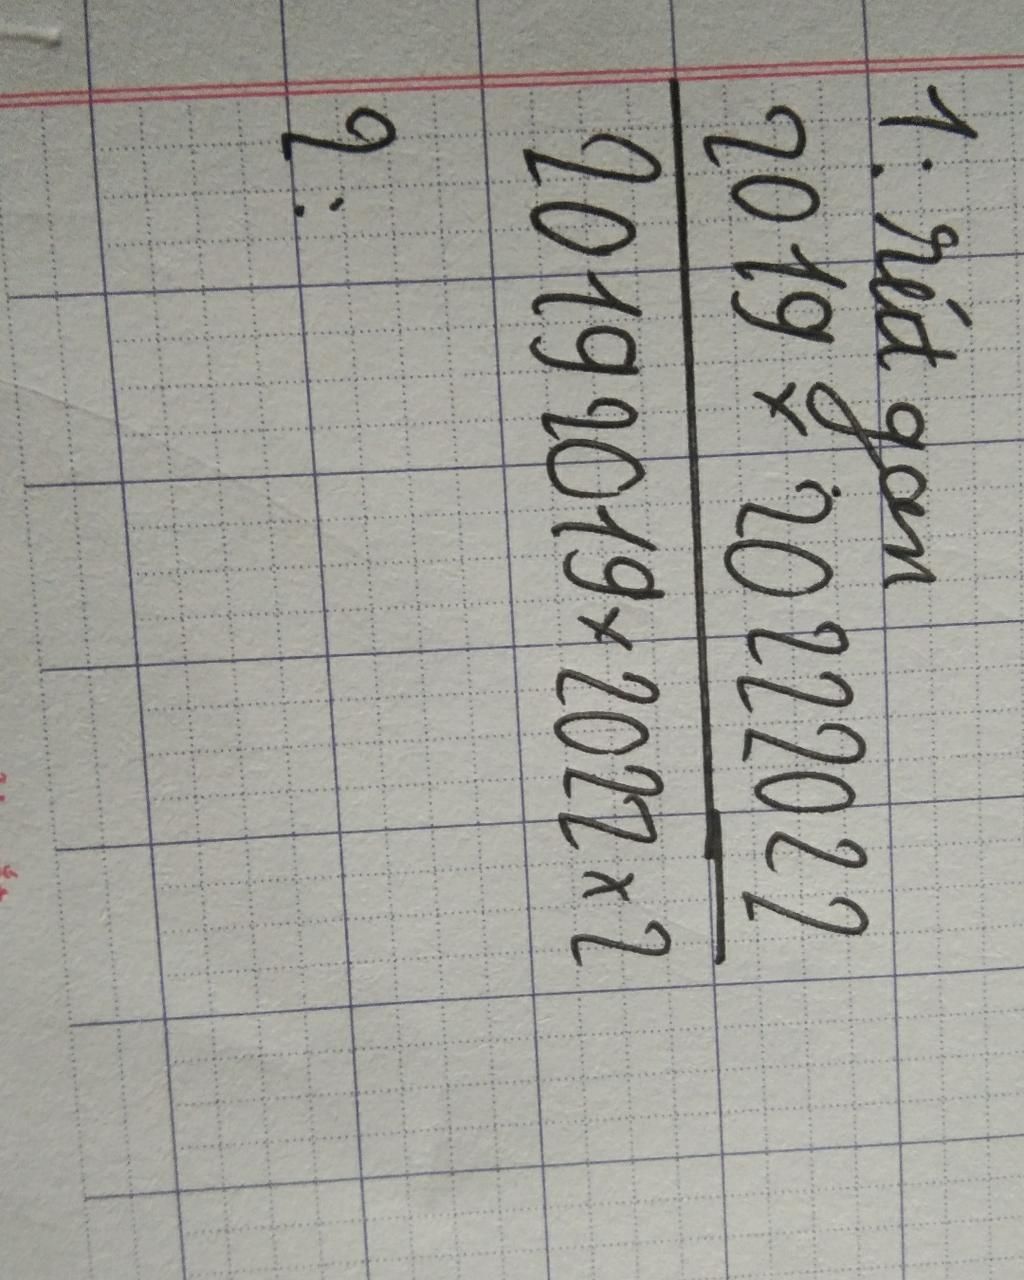 1. rút gọn
2019 x 20222022
20192019 x 2022 x 2
2: